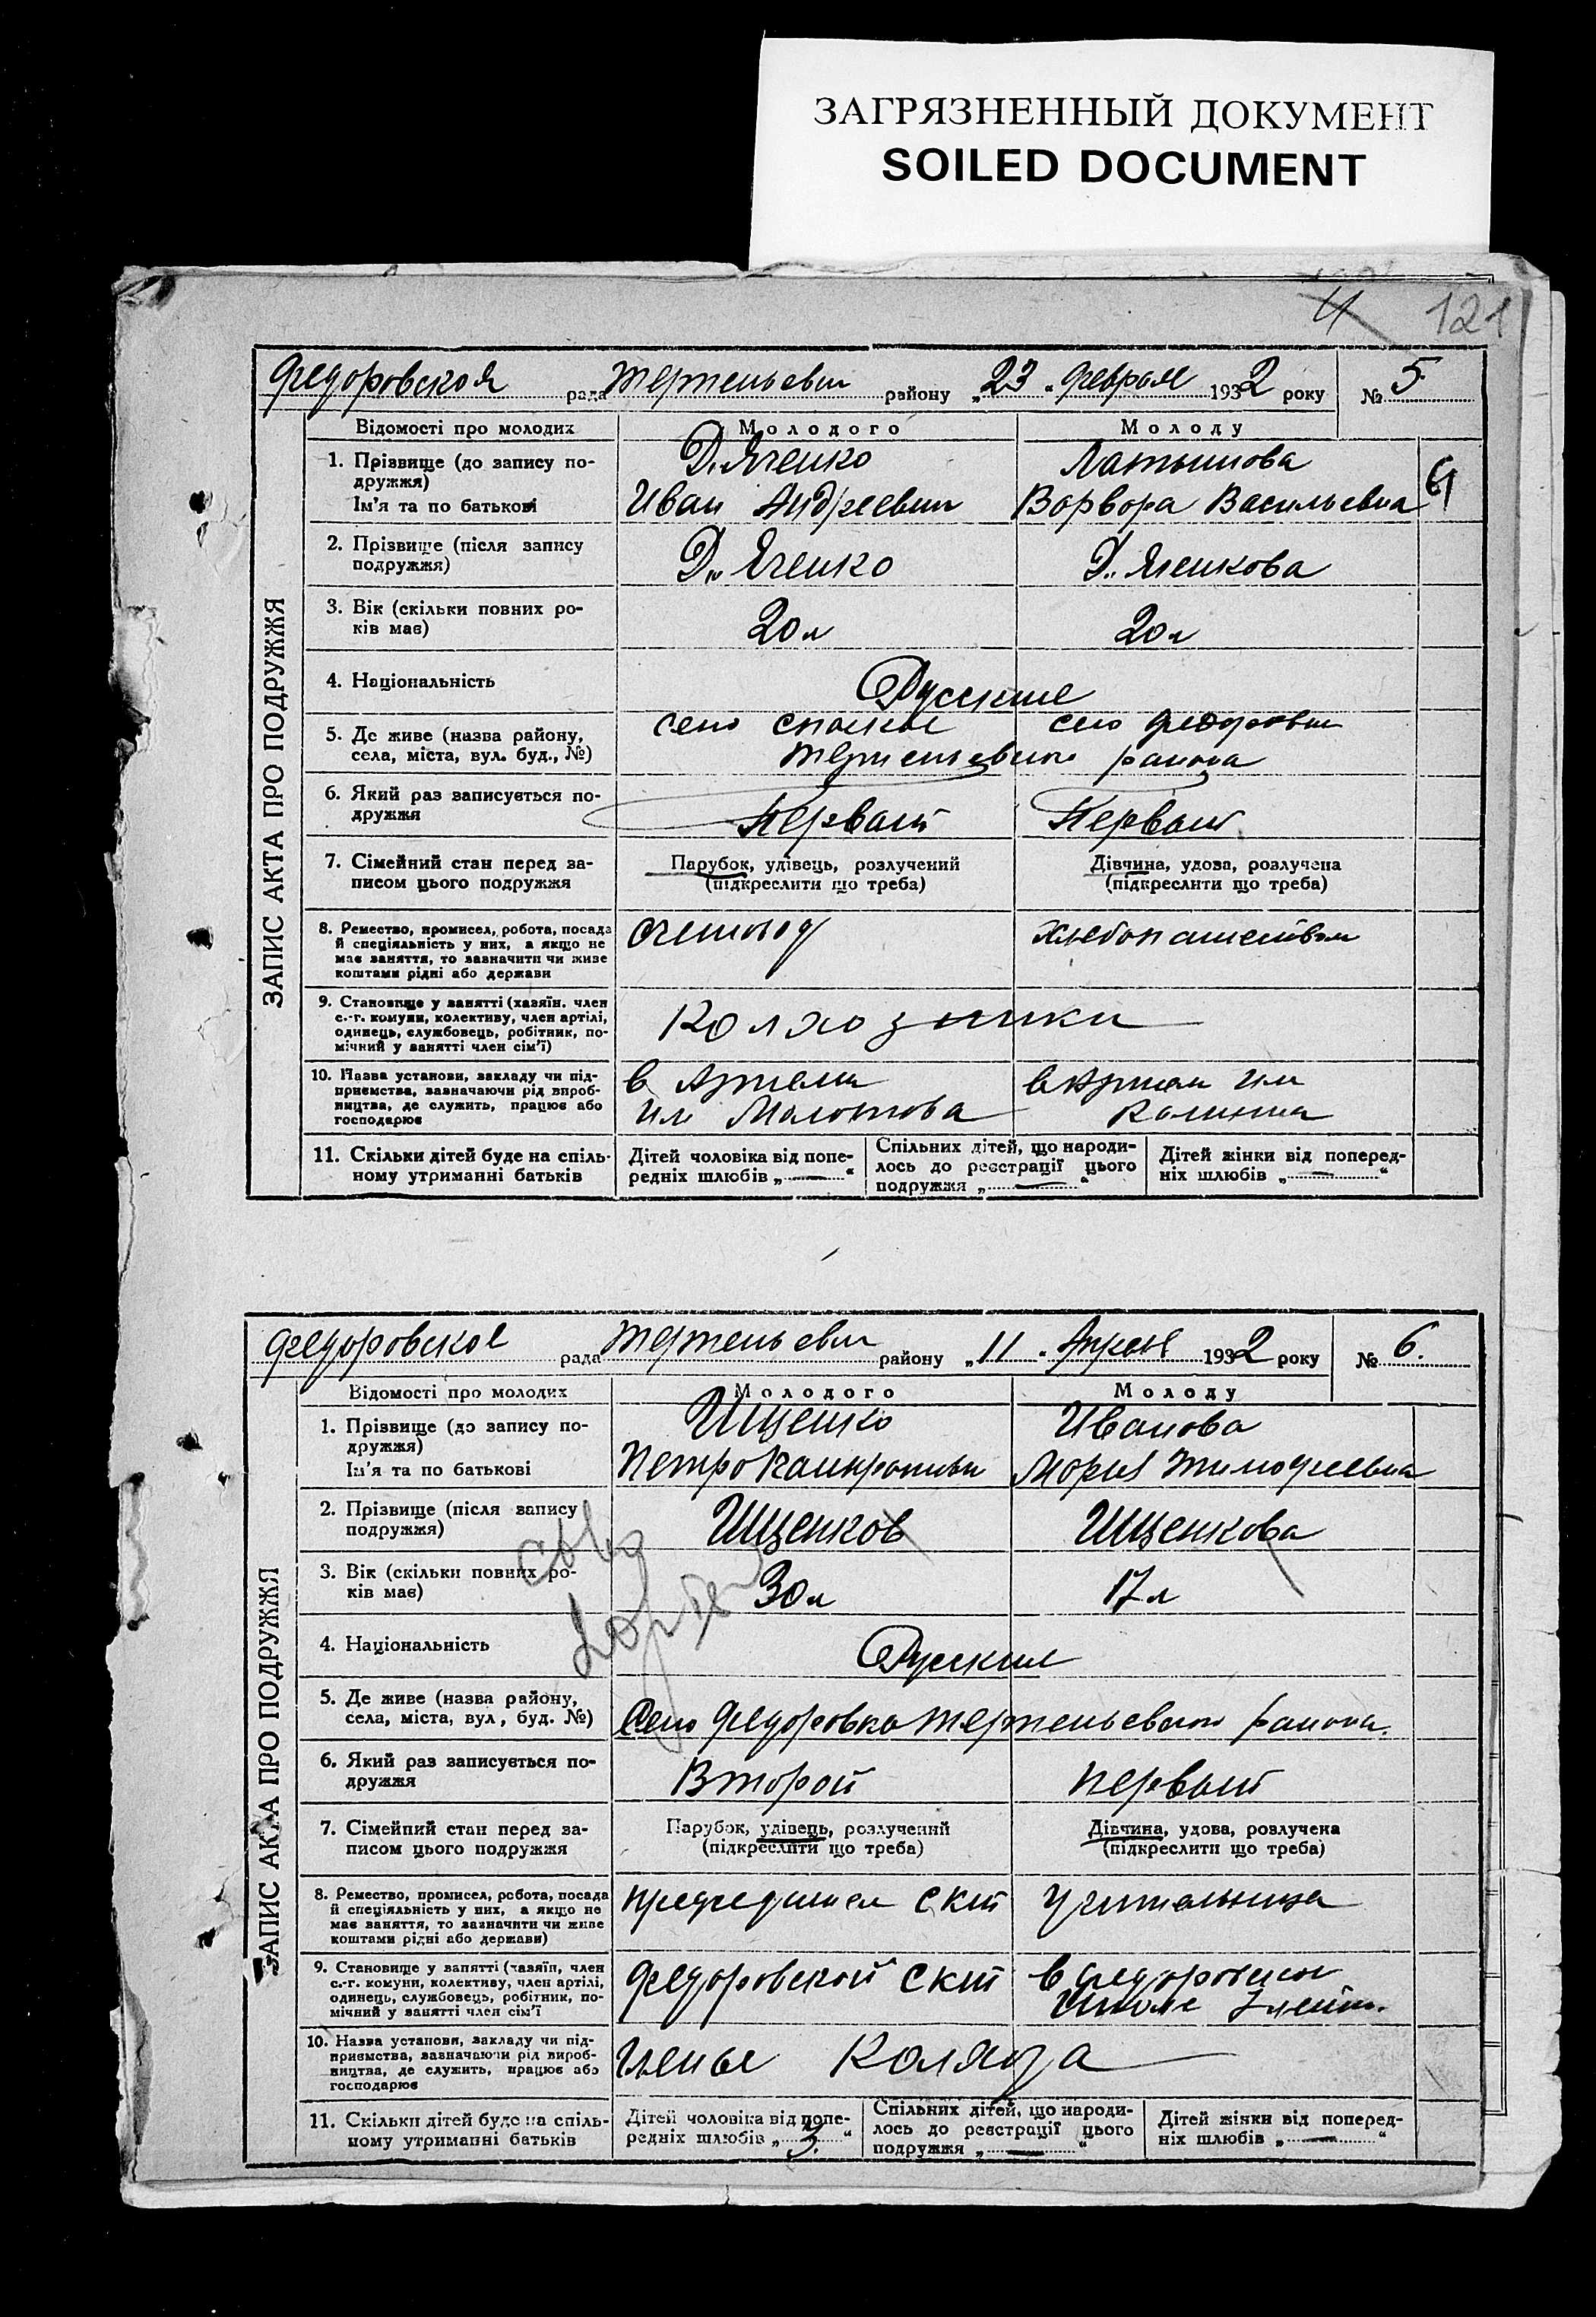 ЗАГРЯЗНЕННЫЙ ДОКУМЕНТ
SOILED DOCUMENT
121
Федоровская рада Терпеньевск району „23„ февраля 1932 року № 5
ЗАПИС АКТА ПРО ПОДРУЖЖЯ
Відомості про молодих Молодого Молоду
1. Прізвище (до запису по-
дружжя) Дияченко Латышова
Ім'я та по батькові Иван Андреевич Варвора Васильевна
2. Прізвище (після запису
подружжя) Дияченко Дияченкова
3. Вік (скільки повних ро-
ків має) 20 л 20 л
4. Національність Русские
5. Де живе (назва району, село Спаское село Федоровка
села, міста, вул. буд., №) Терпеньевского района
6. Який раз записується по-
дружжя Первый Первый
7. Сімейний стан перед за- Парубок, удівець, розлучений Дівчина, удова, розлучена
писом цього подружжя (підкреслити що треба) (підкреслити що треба)
8. Ремество, промисел, робота, посада счетовод хлебопашеством
й спеціяльність у них, а якщо не
має заняття, то зазначити чи живе
коштами рідні або держави
9. Становище у занятті (хазяїн, член Колхозники
с.-г. комуни, колективу, член артілі,
одинець, службовець, робітник, по-
мічний у занятті член сім'ї)
10. Назва установи, закладу чи під- в Артели в Артели им
приємства, зазначаючи рід вироб- им Молотова Калинина
ництва, де служить, працює або
господарює
11. Скільки дітей буде на спіль- Дітей чоловіка від попе- Спільних дітей, що народи- Дітей жінки від поперед-
ному утриманні батьків редніх шлюбів „ — “ лось до реєстрації цього ніх шлюбів „ — “
подружжя „ — “
Федоровское рада Терпеньевск району „11„ Апреля 1932 року № 6.
ЗАПИС АКТА ПРО ПОДРУЖЖЯ
Відомості про молодих Молодого Молоду
1. Прізвище (до запису по- Ищенко Иванова
дружжя)
Ім'я та по батькові Петро Мория Тимофеевна
2. Прізвище (після запису Ищенков Ищенкова
подружжя)
3. Вік (скільки повних ро-
ків має) 30 л 17 л
4. Національність Русские
5. Де живе (назва району,
села, міста, вул, буд. №) Село Федоровка Терпеньевского района.
6. Який раз записується по-
дружжя Второй первый
7. Сімейний стан перед за- Парубок, удівець, розлучений Дівчина, удова, розлучена
писом цього подружжя (підкреслити що треба) (підкреслити що треба)
8. Ремество, промисел, робота, посада председател СКТ учительница
й спеціяльність у них, а якщо не
має заняття, то зазначити чи живе
коштами рідні або держави)
9. Становище у занятті (хазяїн, член Федоровской СКТ в Федоровской
с.-г. комуни, колективу, член артілі, школе
одинець, службовець, робітник, по-
мічний у занятті член сім'ї
10. Назва установи, закладу чи під- члены Колхоза
приємства, зазначаючи рід вироб-
ництва, де служить, працює або
господарює
11. Скільки дітей буде на спіль- Дітей чоловіка від попе- Спільних дітей, що народи- Дітей жінки від поперед-
ному утриманні батьків редніх шлюбів „ 3. “ лось до реєстрації цього ніх шлюбів „ — “
подружжя „ — “